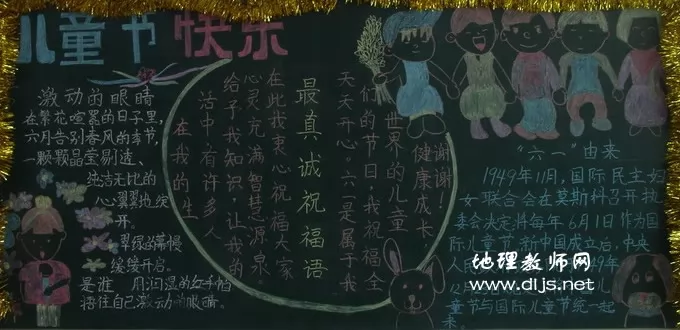 儿童节快乐
激动的眼睛
在繁花喧嚣的日子里,
六月告别春风的季节,
一颗颗晶莹剔透、
纯洁无比的
心翼翼地绽
开,
翠绿的帷幔
缓缓开启。
是谁 用润湿的红手帕
捂住自己激动的眼睛。
最真诚祝福语
在我的生
活中有许多人
给予我知识,让我的
心灵充满智慧源泉。
在此我衷心祝福大家
天天开心。六一是属于我
们的节日,我祝福全
世界的儿童
健康成长
谢谢!
"六一"由来
1949年11月,国际民主妇
女联合会在莫斯科召开执
委会决定将每年6月1日作为国
际儿童节.新中国成立后,中央
人民 49年
童节与国际儿童节统一起
来.
地理教师网
www.dljs.net